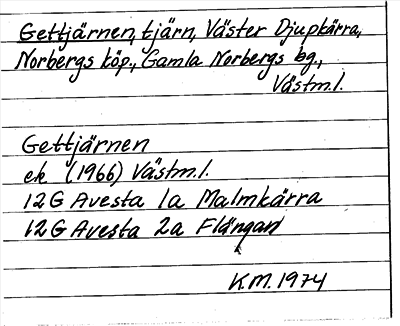 Gettjärnen, tjärn, Väster Djupkärra,
Norbergs köp., Gamla Norbergs bg.,
Västm.l.
Gettjärnen
ek (1966) Västm.l.
12G Avesta 1a Malmkärra
12G Avesta 2a Flängan
KM. 1974